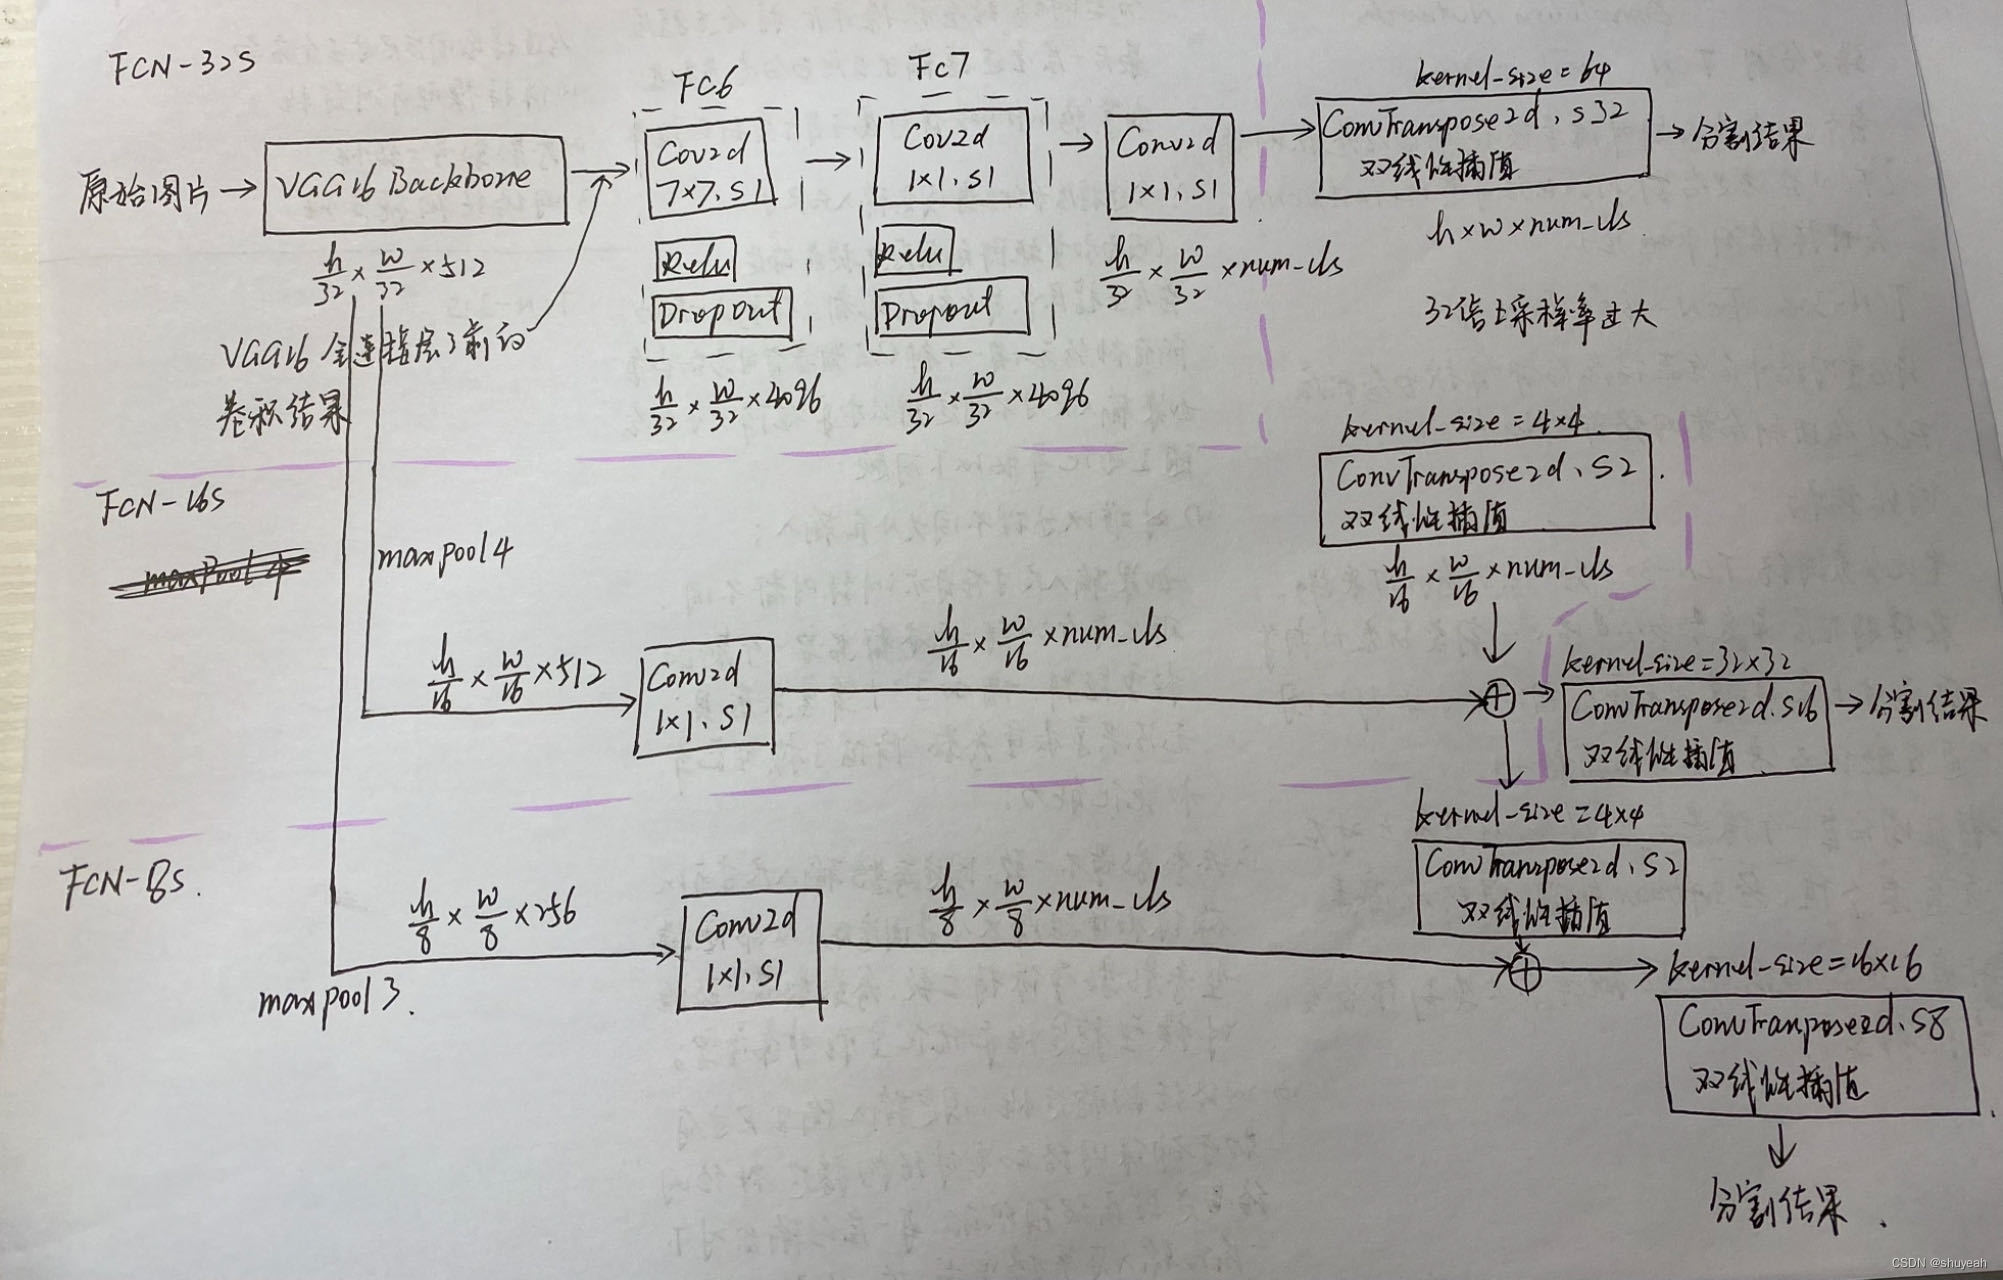 FCN-32s
原始图片
VGG16 Backbone
h/32 × w/32 × 512
VGG16 全连接层之前的
卷积结果
Fc6
Cov2d
7×7, S1
Relu
Dropout
h/32 × w/32 × 4096
Fc7
Cov2d
1×1, S1
Relu
Dropout
h/32 × w/32 × 4096
Conv2d
1×1, S1
h/32 × w/32 × num-cls
kernel-size = 64
ConvTranspose2d, S32
双线性插值
h×w×num-cls
32倍上采样率过大
分割结果
FCN-16s
maxpool4
h/16 × w/16 × 512
Conv2d
1×1, S1
h/16 × w/16 × num-cls
kernel-size = 4×4
ConvTranspose2d, S2
双线性插值
h/16 × w/16 × num-cls
kernel-size=32×32
ConvTranspose2d, S16
双线性插值
分割结果
FCN-8s.
maxpool3.
h/8 × w/8 × 256
Conv2d
1×1, S1
h/8 × w/8 × num-cls
kernel-size=4×4
ConvTranspose2d, S2
双线性插值
kernel-size=16×16
ConvTranpose2d, S8
双线性插值
分割结果.
CSDN @shuyeah